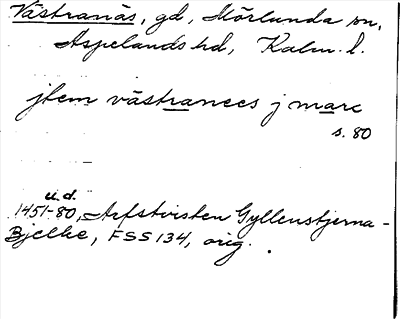 Västranäs, gd, Mörlunda sn,
Aspelands hd, Kalm. l.
jtem västranees j marc
s. 80
u.d.
1451-80, Arfstvisten Gyllenstjerna-
Bjelke, FSS 134, orig.